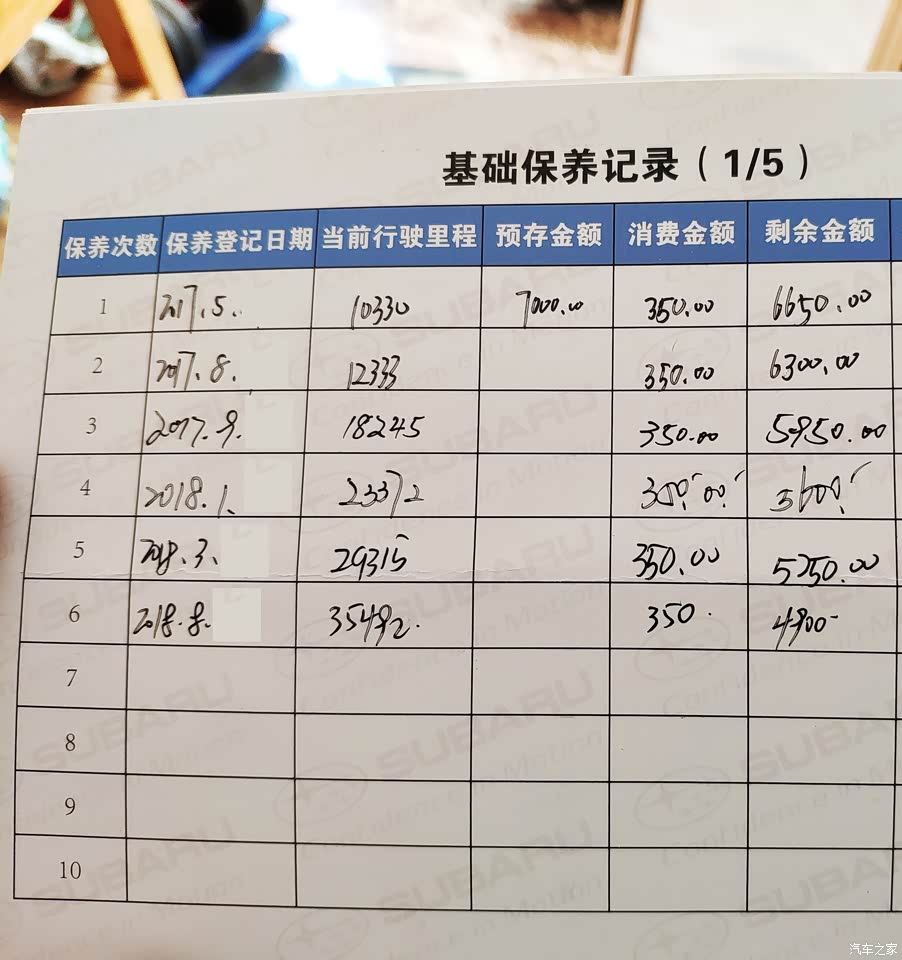 基础保养记录（1/5）
保养次数 保养登记日期 当前行驶里程 预存金额 消费金额 剩余金额
1 2017.5. 10330 7000.00 350.00 6650.00
2 2017.8. 12333 350.00 6300.00
3 2017.9. 18245 350.00 5950.00
4 2018.1. 23372 350.00 5600.
5 2018.3. 29315 350.00 5250.00
6 2018.8. 35492. 350. 4900-
7
8
9
10
SUBARU
Confidence in Motion
汽车之家